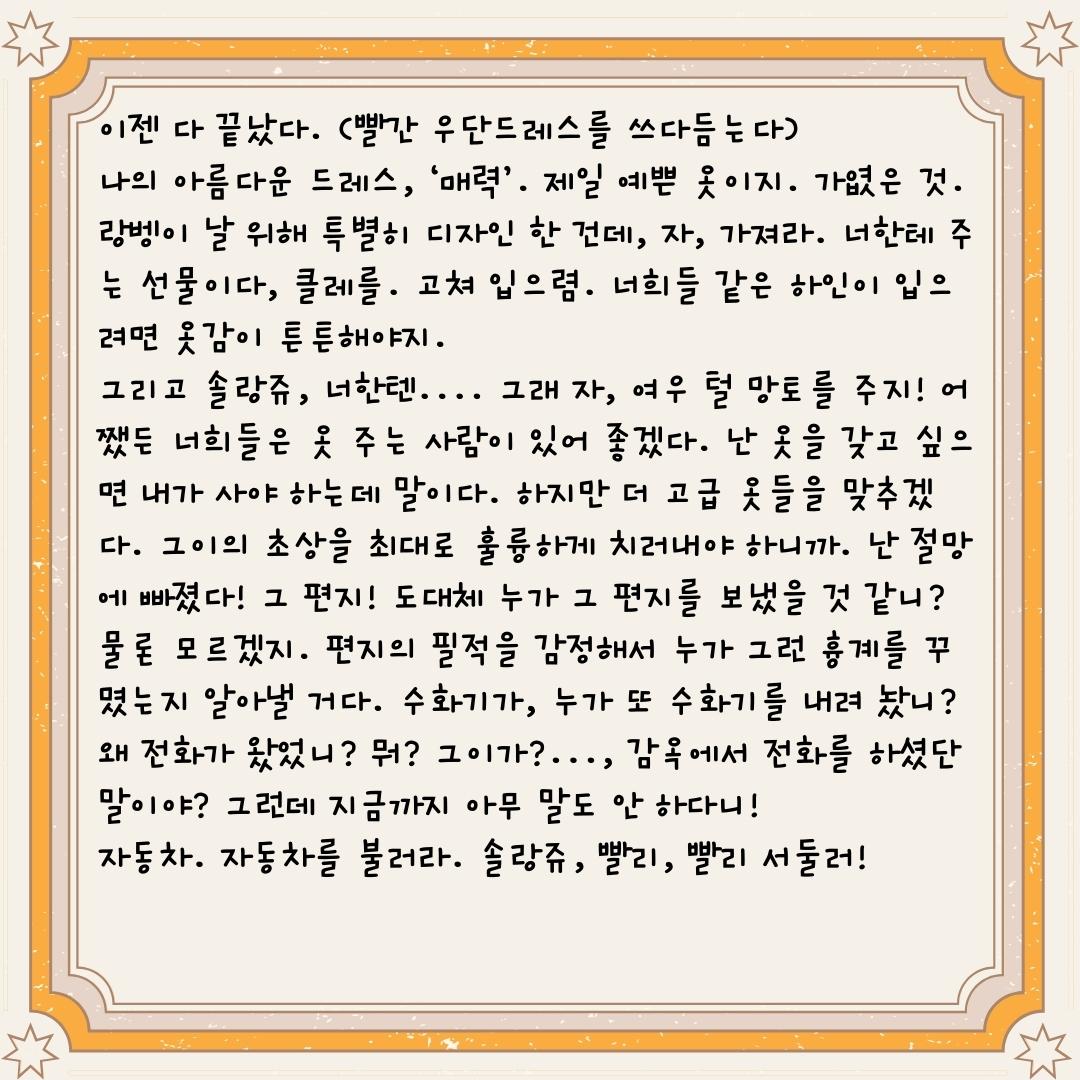 이젠 다 끝났다. (빨간 우단드레스를 쓰다듬는다)
나의 아름다운 드레스, ‘매력’. 제일 예쁜 옷이지. 가엾은 것.
랑벵이 날 위해 특별히 디자인 한 건데, 자, 가져라. 너한테 주
는 선물이다, 클레를. 고쳐 입으렴. 너희들 같은 하인이 입으
려면 옷감이 튼튼해야지.
그리고 솔랑쥬, 너한텐.... 그래 자, 여우 털 망토를 주지! 어
쨌든 너희들은 옷 주는 사람이 있어 좋겠다. 난 옷을 갖고 싶으
면 내가 사야 하는데 말이다. 하지만 더 고급 옷들을 맞추겠
다. 그이의 초상을 최대로 훌륭하게 치러내야 하니까. 난 절망
에 빠졌다! 그 편지! 도대체 누가 그 편지를 보냈을 것 같니?
물론 모르겠지. 편지의 필적을 감정해서 누가 그런 흉계를 꾸
몄는지 알아낼 거다. 수화기가, 누가 또 수화기를 내려 놨니?
왜 전화가 왔었니? 뭐? 그이가?..., 감옥에서 전화를 하셨단
말이야? 그런데 지금까지 아무 말도 안 하다니!
자동차. 자동차를 불러라. 솔랑쥬, 빨리, 빨리 서둘러!